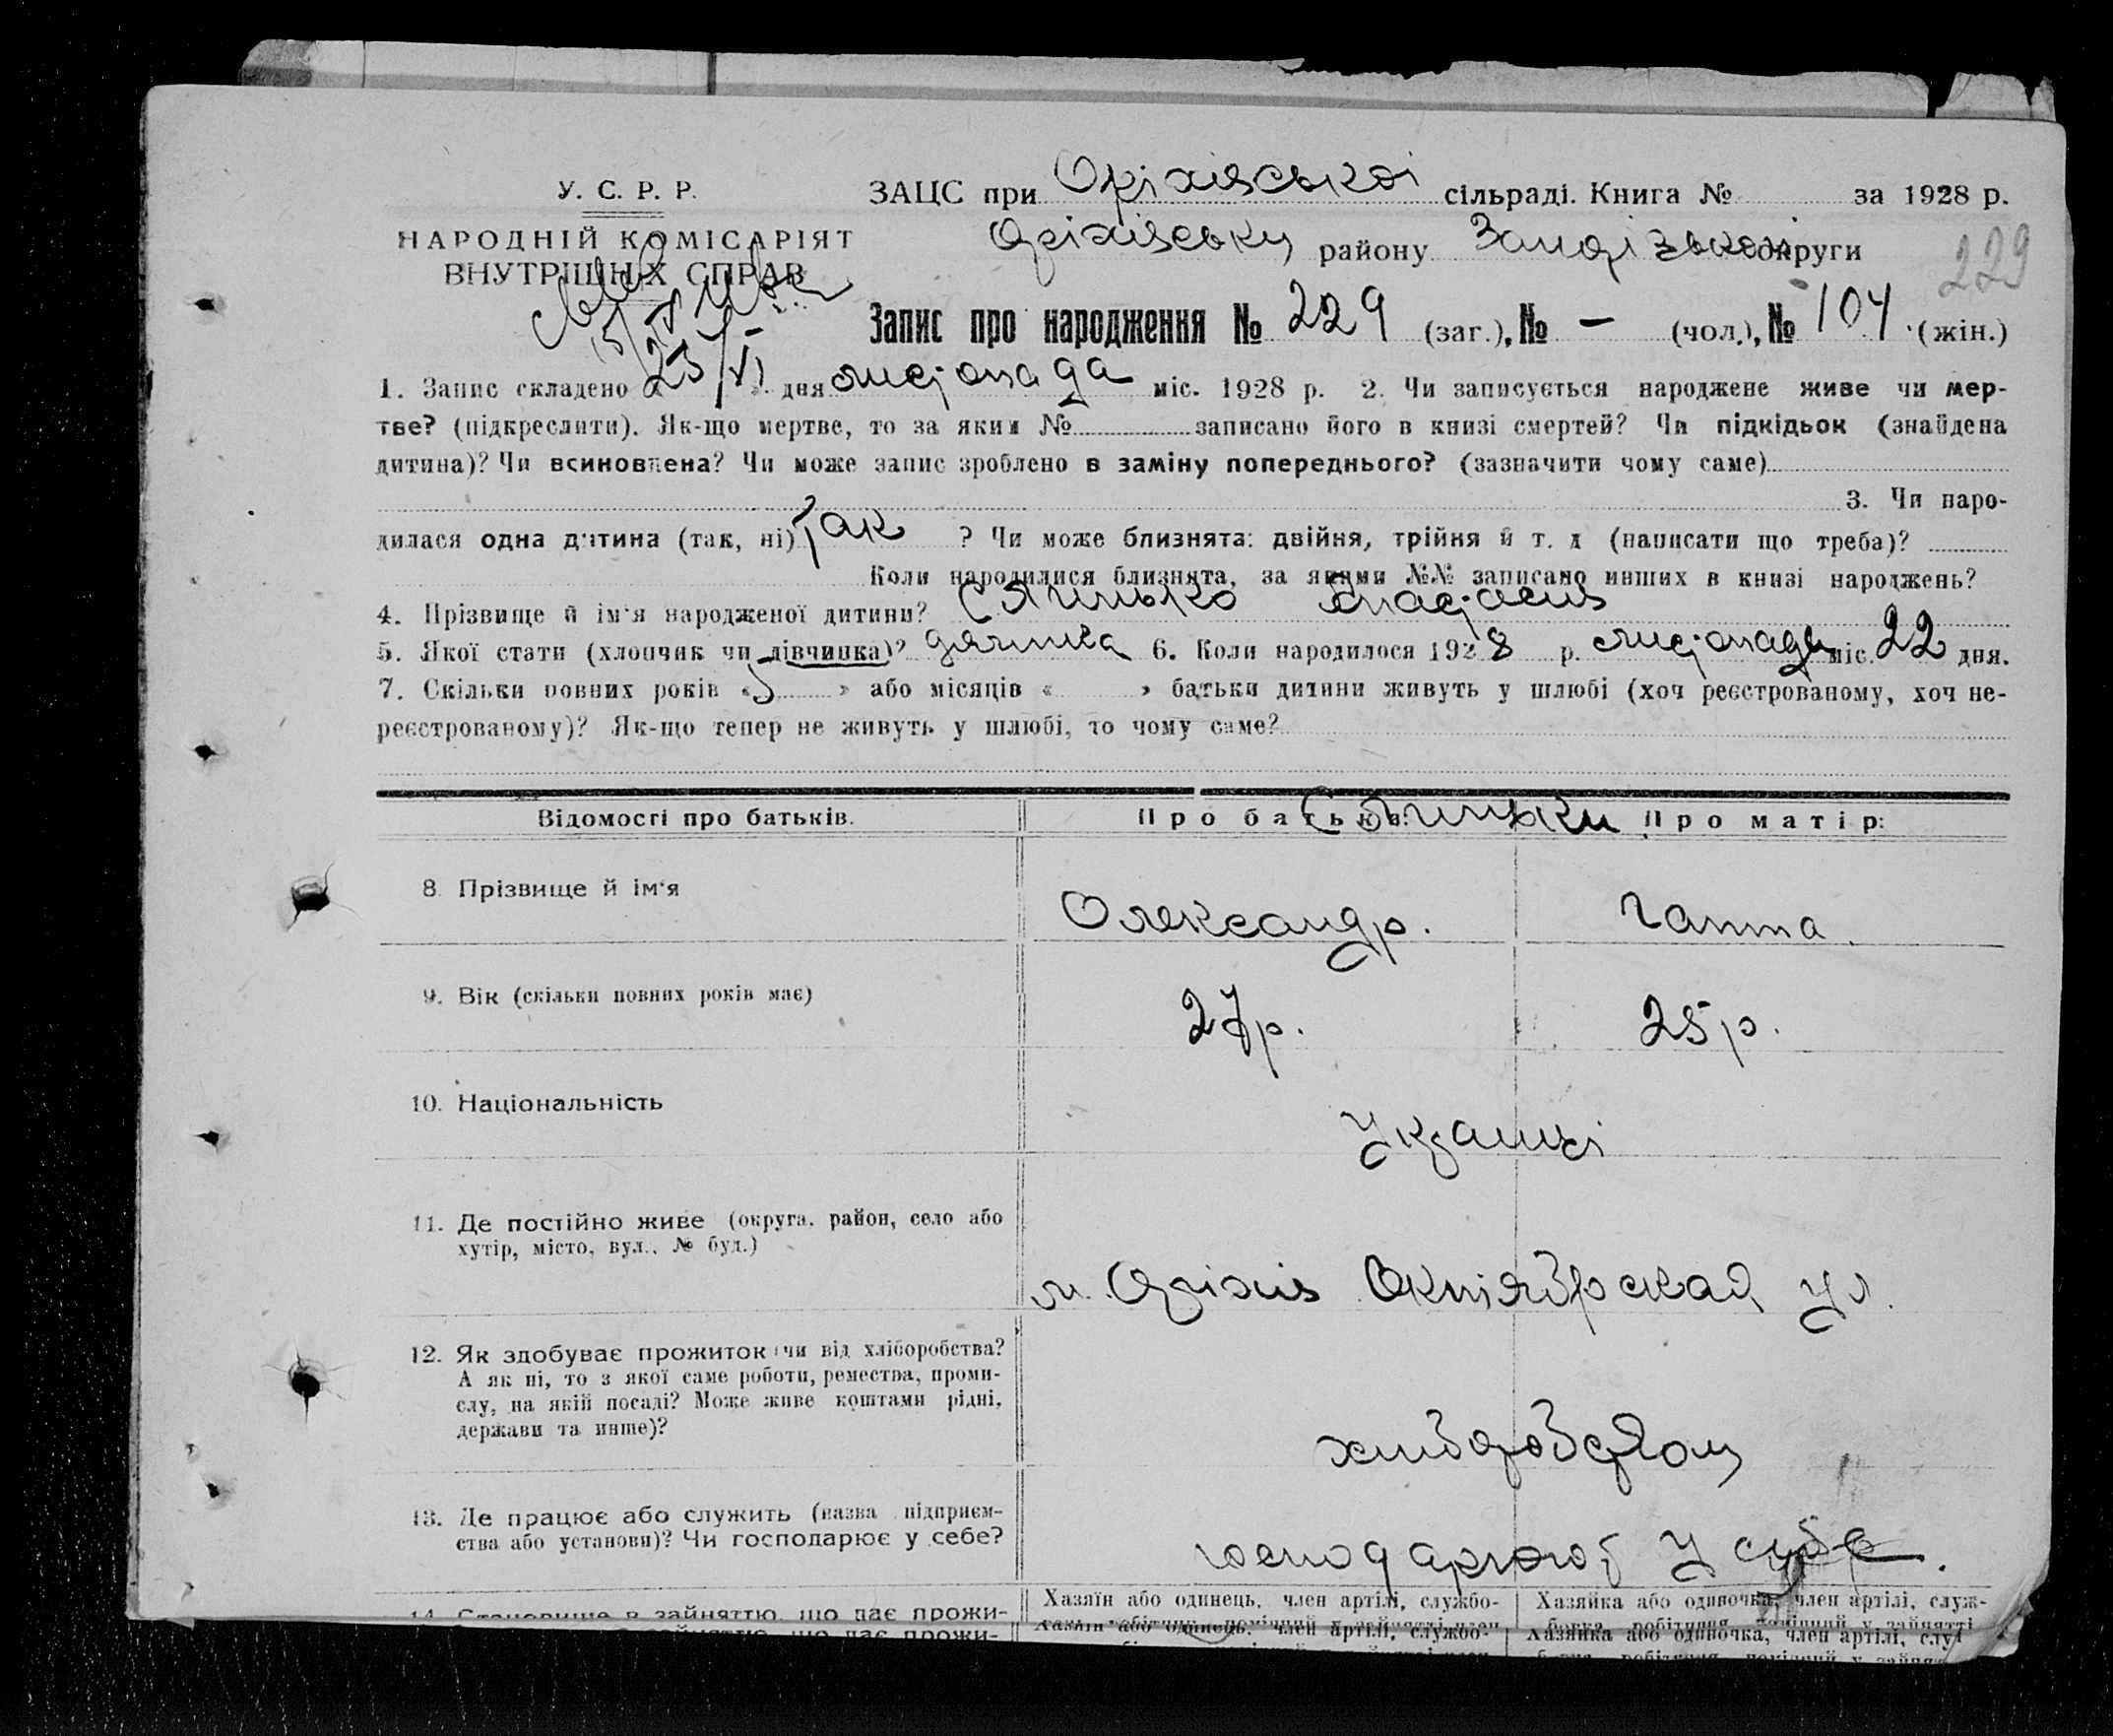 У. С. Р. Р.
НАРОДНІЙ КОМІСАРІЯТ
ВНУТРІШНІХ СПРАВ
ЗАЦС при Оріхівської сільраді. Книга № за 1928 р.
Оріхівську району округи
229
Запис про народження № 229 (заг.), № — (чол.), № 104 (жін.)
1. Запис складено 23/VI дня листопада міс. 1928 р. 2. Чи записується народжене живе чи мер-
тве? (підкреслити). Як-що мертве, то за яким № записано його в книзі смертей? Чи підкідьок (знайдена
дитина)? Чи всиновлена? Чи може запис зроблено в заміну попереднього? (зазначити чому саме)
3. Чи наро-
дилася одна дитина (так, ні) Так ? Чи може близнята: двійня, трійня й т. д (написати що треба)?
Коли народилися близнята, за якими №№ записано инших в книзі народжень?
4. Прізвище й ім'я народженої дитини?
5. Якої стати (хлопчик чи дівчинка)? дівчинка 6. Коли народилося 1928 р. листопада міс. 22 дня.
7. Скільки повних років «5» або місяців « » батьки дитини живуть у шлюбі (хоч реєстрованому, хоч не-
реєстрованому)? Як-що тепер не живуть у шлюбі, то чому саме?
Відомості про батьків. Про батька: Про матір:
8. Прізвище й ім'я Олександр. Ганна
9. Вік (скільки повних років має) 27 р. 25 р.
10. Національність Українці
11. Де постійно живе (округа, район, село або
хутір, місто, вул., № буд.)
м. Оріхів Октябрская ул.
12. Як здобуває прожиток: чи від хліборобства?
А як ні, то з якої саме роботи, ремества, проми-
слу, на якій посаді? Може живе коштами рідні,
держави та инше)?
хліборобством
13. Де працює або служить (назва підприєм-
ства або установи)? Чи господарює у себе?
господарюют у себе.
14. Становище в зайняттю, що дає прожи-
Хазяїн або одинець, член артілі, службо-
Хазяйка або одиночка, член артілі, служ-
Хазяїн або одинець, член артілі, службо-
Хазяйка або одиночка, член артілі, слу